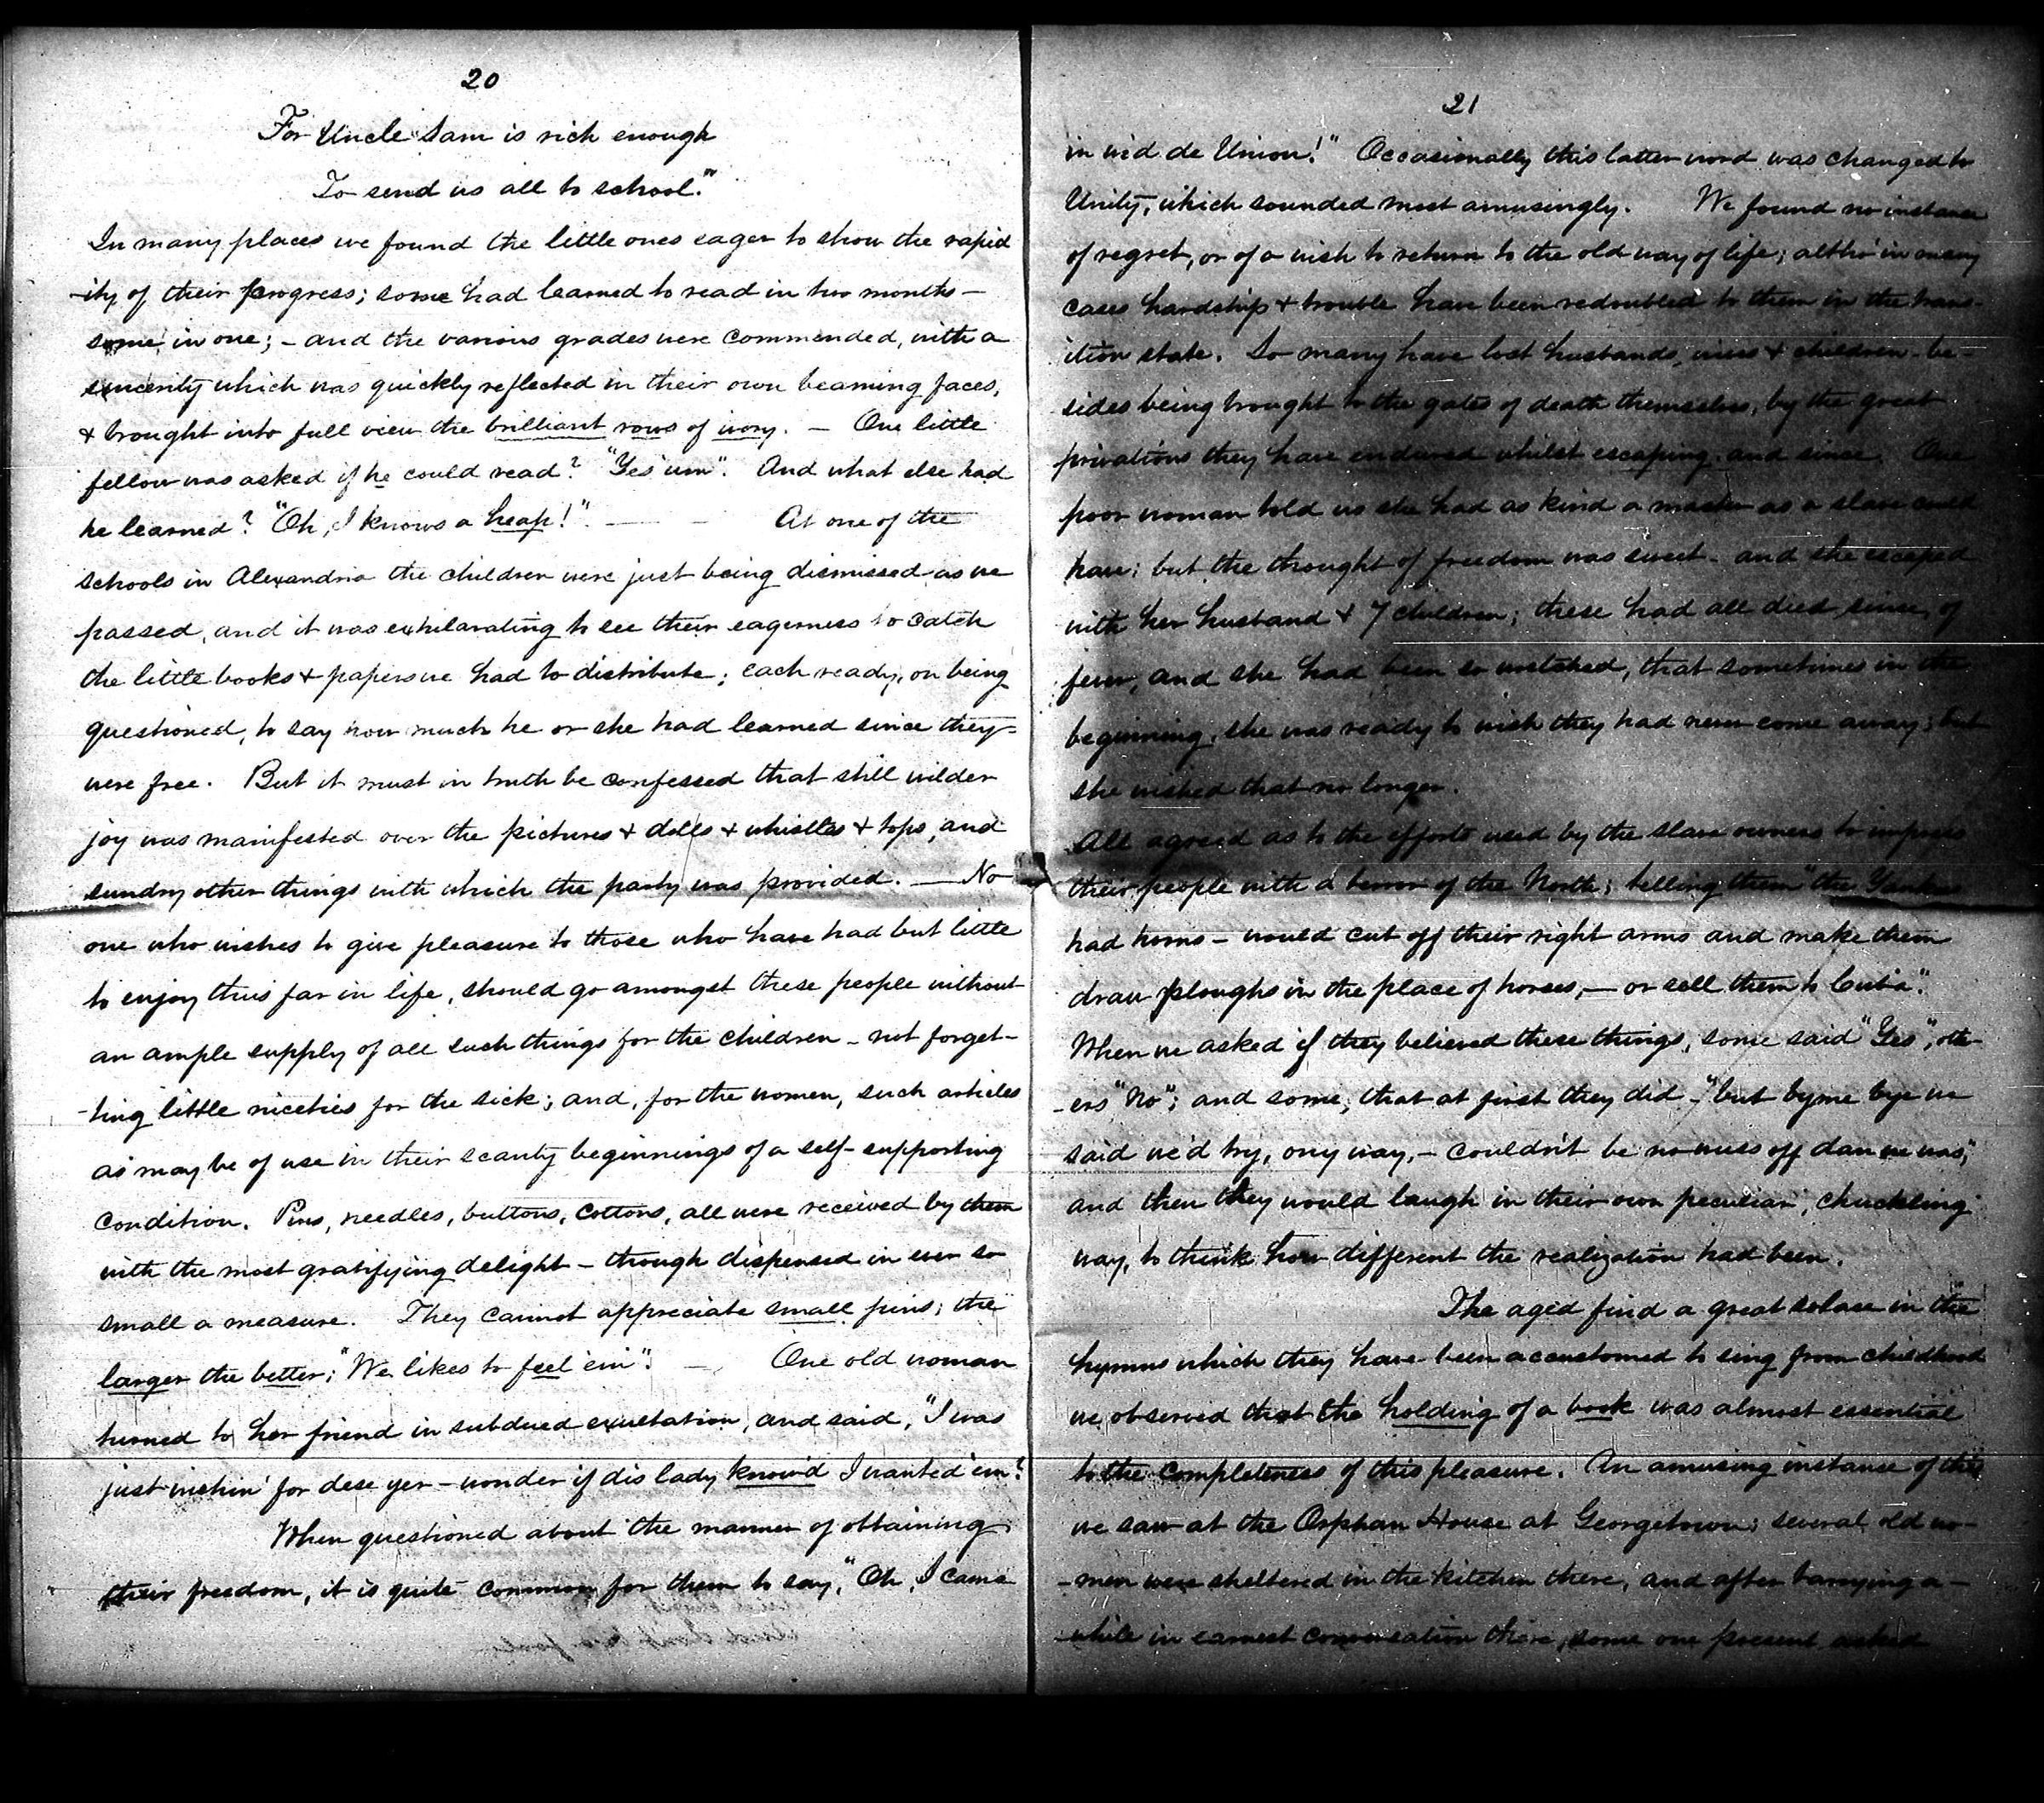 20
For Uncle Sam is rich enough
To send us all to school."
In many places we found the little ones eager to show the rapid
-ity of their progress; some had learned to read in two months –
some in one; – and the various grades were commended, with a
sincerity which was quickly reflected in their own beaming faces,
& brought into full view the brilliant rows of ivory. – One little
fellow was asked if he could read? "Yes'um". And what else had
he learned? "Oh, I knows a heap!" — – At one of the
schools in Alexandria the children were just being dismissed as we
passed, and it was exhilarating to see their eagerness to catch
the little books & papers we had to distribute; each ready, on being
questioned, to say how much he or she had learned since they
were free. But it must in truth be confessed that still wilder
joy was manifested over the pictures & dolls & whistles & tops, and
sundry other things with which the party was provided. — No
one who wishes to give pleasure to those who have had but little
to enjoy thus far in life, should go amongst these people without
an ample supply of all such things for the children – not forget-
-ting little niceties for the sick; and, for the women, such articles
as may be of use in their scanty beginnings of a self-supporting
condition. Pins, needles, buttons, cottons, all were received by them
with the most gratifying delight – though dispensed in ever so
small a measure. They cannot appreciate small pins; the
larger the better; "We likes to feel 'em". — One old woman
turned to her friend in subdued exultation, and said, "I was
just wishin' for dese yer – wonder if dis lady know'd I wanted 'em?
When questioned about the manner of obtaining
their freedom, it is quite common for them to say, "Oh, I came
21
in wid de Union!" Occasionally this latter word was changed to
Unity, which sounded most amusingly. We found no instance
of regret, or of a wish to return to the old way of life; altho' in many
cases hardship & trouble have been redoubled to them in the trans-
ition state. So many have lost husbands, wives & children – be-
sides being brought to the gates of death themselves, by the great
privations they have endured whilst escaping, and since. One
poor woman told us she had as kind a master as a slave could
have; but the thought of freedom was sweet – and she escaped
with her husband & 7 children; these had all died since, of
fever, and she had been so wretched, that sometimes in the
beginning, she was ready to wish they had never come away; but
she wished that no longer.
All agreed as to the efforts used by the slave owners to impress
their people with a terror of the North; telling them "the Yanks
had horns – would cut off their right arms and make them
draw ploughs in the place of horses, – or sell them to Cuba".
When we asked if they believed these things, some said "Yes", oth-
-ers "No"; and some, that at first they did – "but byme bye we
said we'd try, any way, – couldn't be no wuss off dan we was,"
and then they would laugh in their own peculiar, chuckling
way, to think how different the realization had been.
The aged find a great solace in the
hymns which they have been accustomed to sing from childhood
we observed that the holding of a book was almost essential
to the completeness of this pleasure. An amusing instance of this
we saw at the Orphan House at Georgetown; several old wo-
-men were sheltered in the kitchen there, and after tarrying a-
-while in earnest conversation there, some one present asked